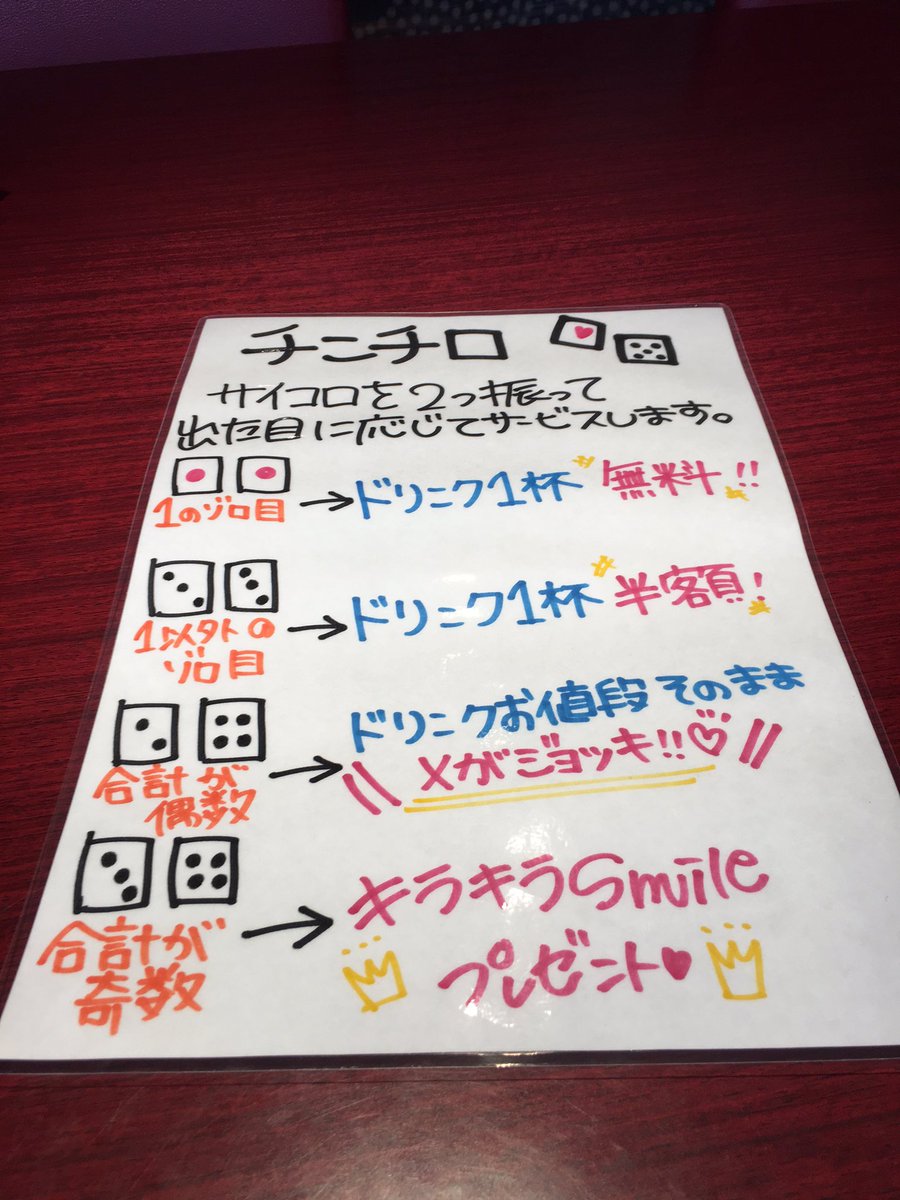 チンチロ
サイコロを2つ振って
出た目に応じてサービスします。
1のゾロ目
→ドリンク1杯 無料!!
1以外の
ゾロ目
→ドリンク1杯 半額!
合計が
偶数
→ドリンクお値段そのまま
\\メガジョッキ!!♡//
合計が
奇数
→キラキラSmile
プレゼント♥